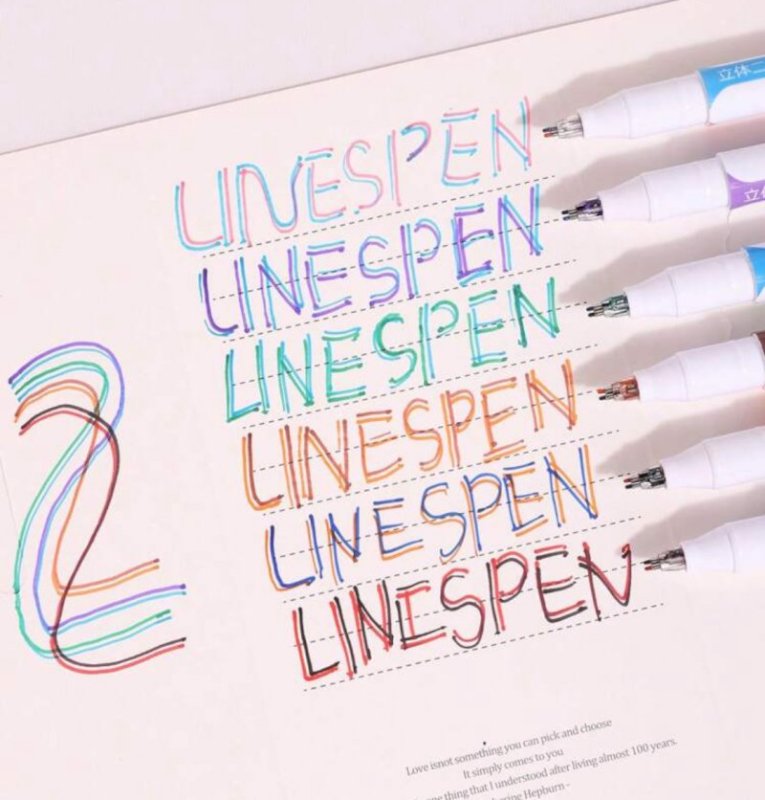 LINESPEN
立体二
LINESPEN
立体
LINESPEN
LINESPEN
LINESPEN
LINESPEN
2
Love isnot something you can pick and choose
It simply comes to you
thing that I understood after living almost 100 years.
Hepburn-